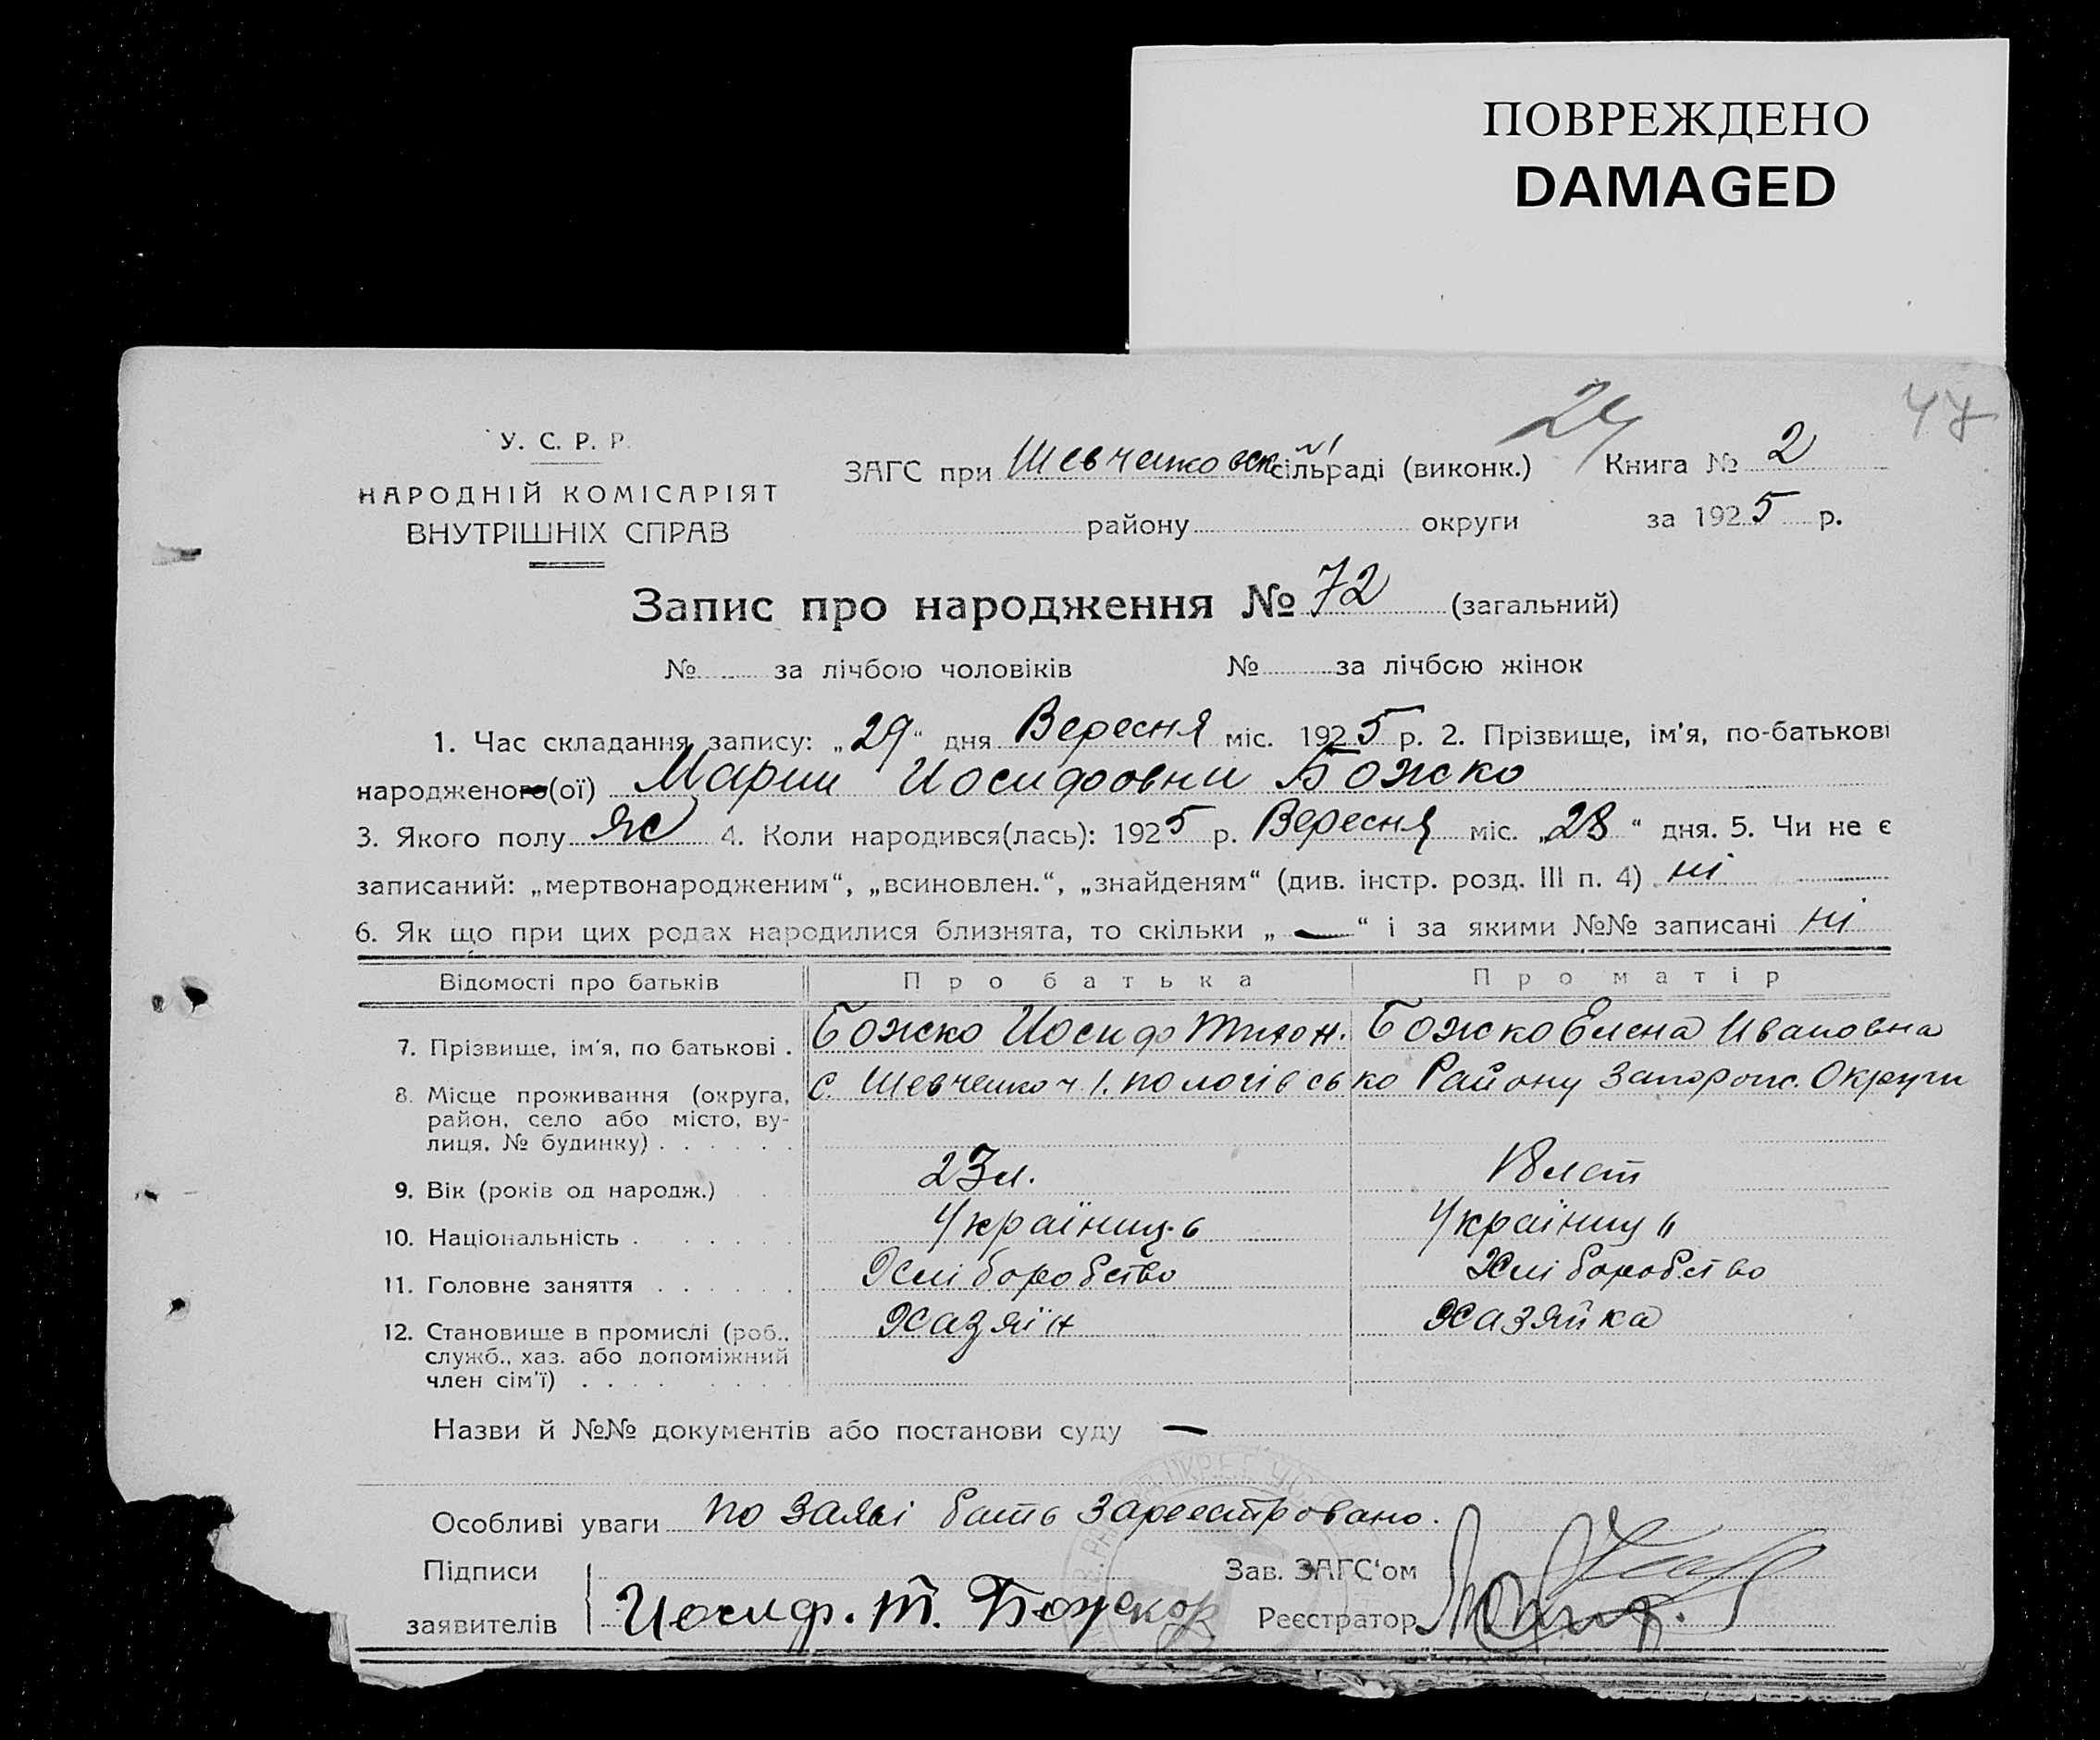 ПОВРЕЖДЕНО
DAMAGED
24
47
У. С. Р. Р.
НАРОДНІЙ КОМІСАРІЯТ
ВНУТРІШНІХ СПРАВ
ЗАГС при Шевченковск №1 сільраді (виконк.) Книга № 2
району округи за 1925 р.
Запис про народження № 72 (загальний)
№ за лічбою чоловіків № за лічбою жінок
1. Час складання запису: „29“ дня Вересня міс. 1925 р. 2. Прізвище, ім'я, по-батькові
народженого(ої) Марии Иосифовни Божко
3. Якого полу ж 4. Коли народився(лась): 1925 р. Вересня міс. „28“ дня. 5. Чи не є
записаний: „мертвонародженим“, „всиновлен.“, „знайденям“ (див. інстр. розд. III п. 4) ні
6. Як що при цих родах народилися близнята, то скільки „—“ і за якими №№ записані ні
Відомості про батьків Про батька Про матір
7. Прізвище, ім'я, по батькові . Божко Иосиф Тихон. Божко Елена Ивановна
8. Місце проживання (округа, с. Шевченко ч 1. пологівсько Району Запорож. Округи
район, село або місто, ву-
лиця, № будинку) . . . . . .
9. Вік (років од народж.) 23 л. 18 лет
10. Національність . . . . . . Українц.ь Українц"
11. Головне заняття . . . . . . Хліборобство Хліборобство
12. Становище в промислі (роб., Хазяїн Хазяйка
служб., хаз. або допоміжний
член сім'ї) . . . . . . . .
Назви й №№ документів або постанови суду —
Особливі уваги по заяві бать зареестровано.
Підписи Зав. ЗАГС'ом
заявителів Иосиф. Т. Божко Реєстратор